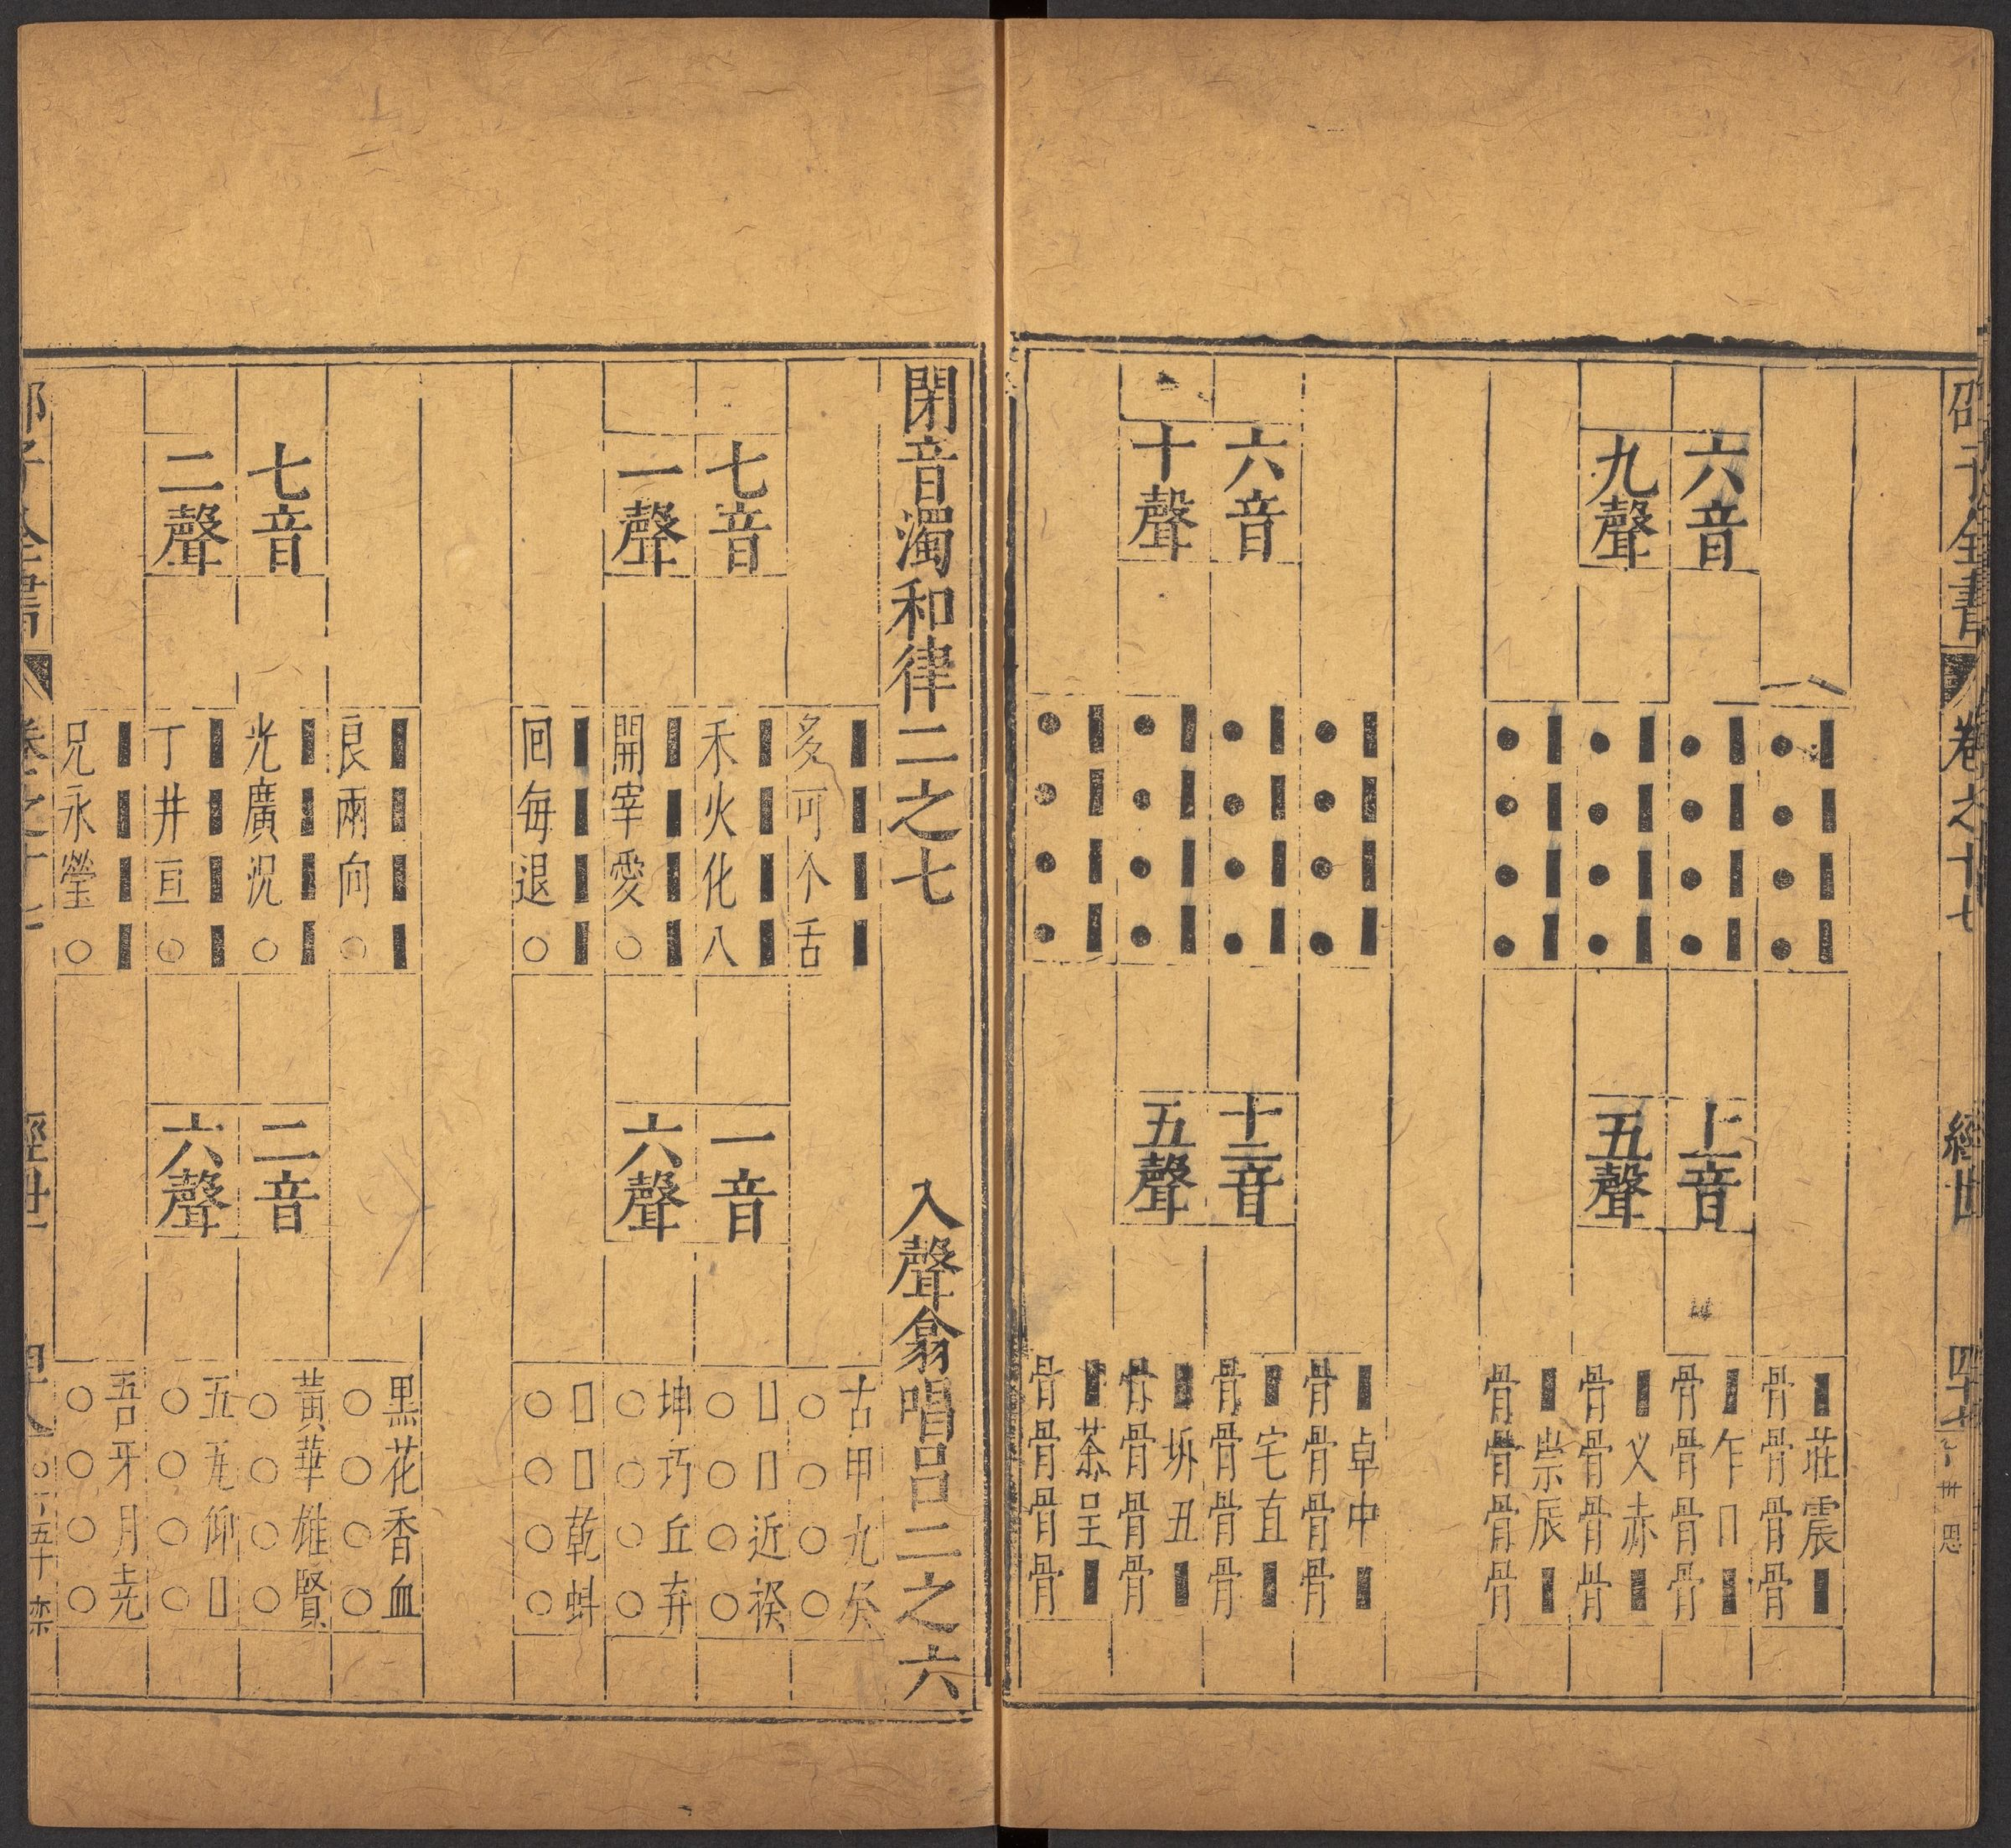 邵子全書
卷之十七
經世
六音
九聲
●●●●
●●●●
●●●●
●●●●
六音
十聲
●●●●
●●●●
●●●●
●●●●
十一音
五聲
■莊震■
骨骨骨骨
■乍□■
骨骨骨骨
■乂赤■
骨骨骨骨
■崇辰■
骨骨骨骨
十二音
五聲
■卓中■
骨骨骨骨
■宅直■
骨骨骨骨
■坼丑■
骨骨骨骨
■茶呈■
骨骨骨骨
閉音濁和律二之七
入聲翕唱呂二之六
七音
一聲
■■■■
多可个舌
■■■■
禾火化八
■■■■
開宰愛○
■■■■
回每退○
一音
六聲
古甲九癸
○○○○
□□近揆
○○○○
坤巧丘弃
○○○○
□□乾蚪
○○○○
七音
二聲
■■■■
良兩向○
■■■■
光廣況○
■■■■
丁井亘○
■■■■
兄永瑩○
二音
六聲
黑花香血
○○○○
黃華雄賢
○○○○
五瓦仰□
○○○○
吾牙月堯
○○○○
卷之十七
經世